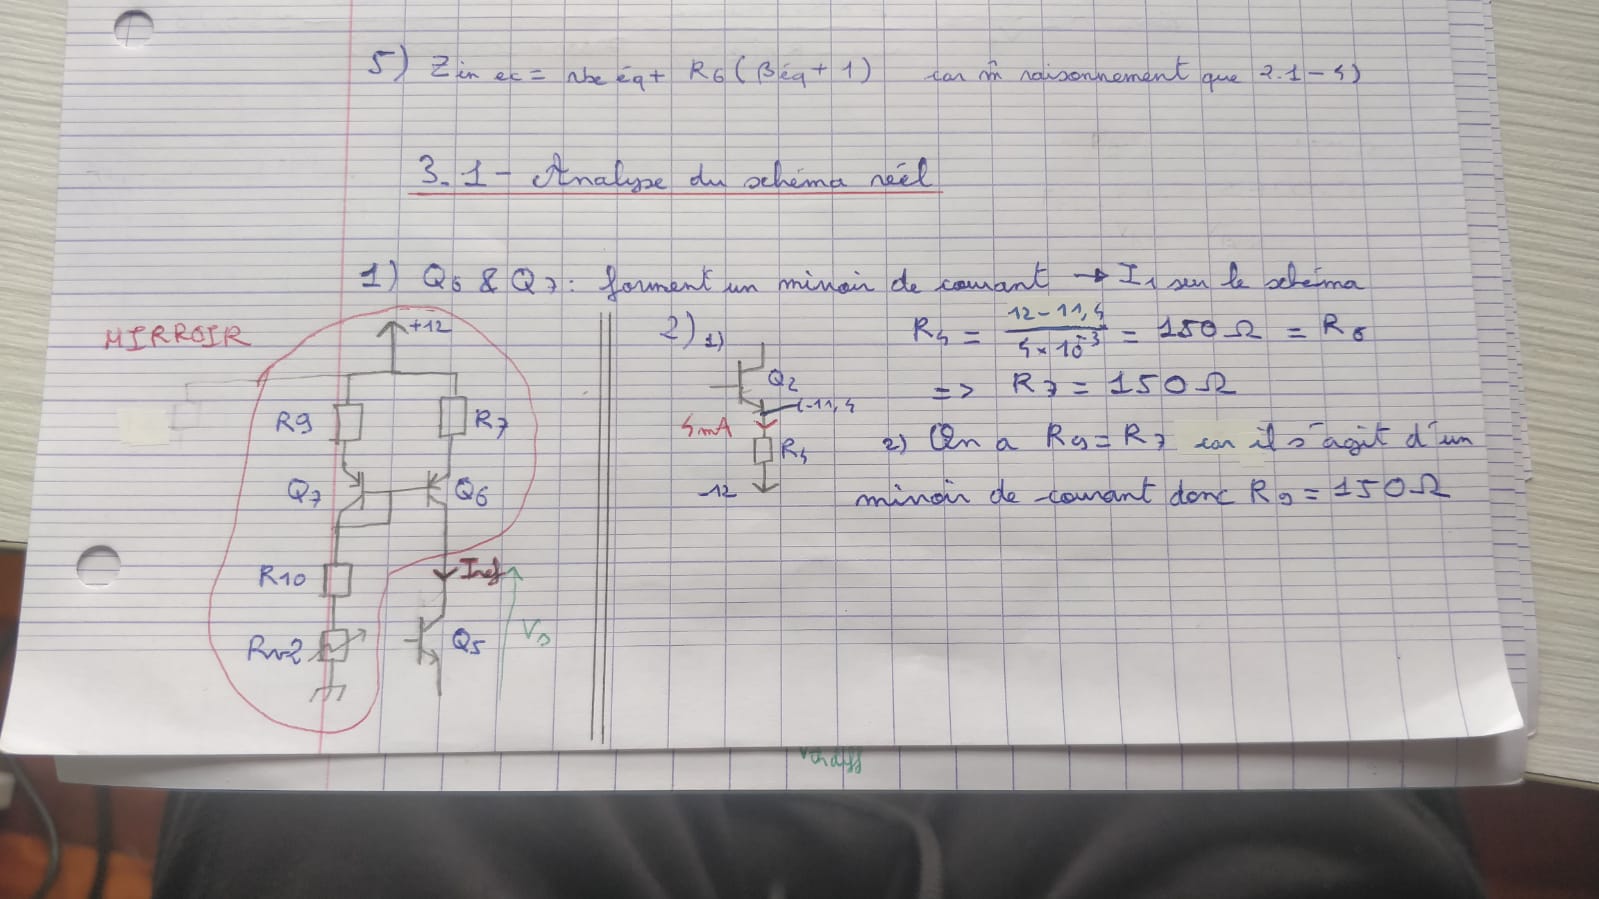 5) Zin ec = rbe éq + R6 (βéq + 1) car m̂ raisonnement que 2.1-4)
3.1 - Analyse du schéma réél
1) Q6 & Q7 : forment un miroir de courant → I1 sur le schéma
MIRROIR
+12
R9
R7
Q7
Q6
R10
Iref
Rv2
Q5
Vs
2) 1)
Q2
-11,4
4mA
R4
-12
R4 = (12 - 11,4) / (4 × 10⁻³) = 150 Ω = R6
=> R7 = 150 Ω
2) On a R9 = R7 car il s'agit d'un
miroir de courant donc R9 = 150 Ω